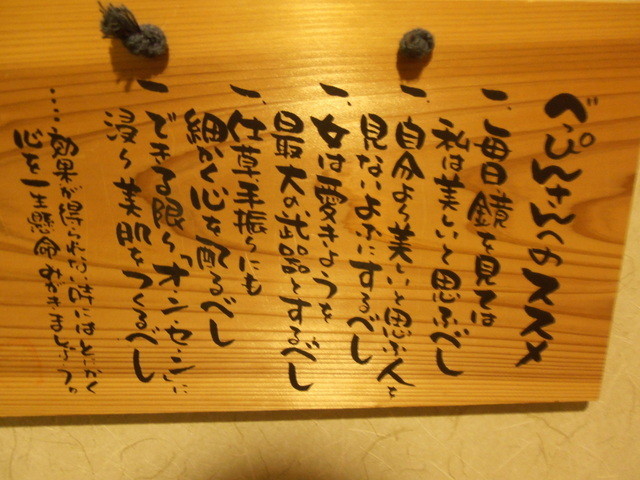 べっぴんさんのススメ
一、毎日鏡を見ては
私は美しいと思ふべし
一、自分より美しいと思ふ人を
見ないようにするべし
一、女は愛きょうを
最大の武器とするべし
一、仕草手振りにも
細かく心を配るべし
一、できる限り「オンセン」に
浸り美肌をつくるべし
・・・・効果が得られない時にはとにかく
心を一生懸命みがきましょう。